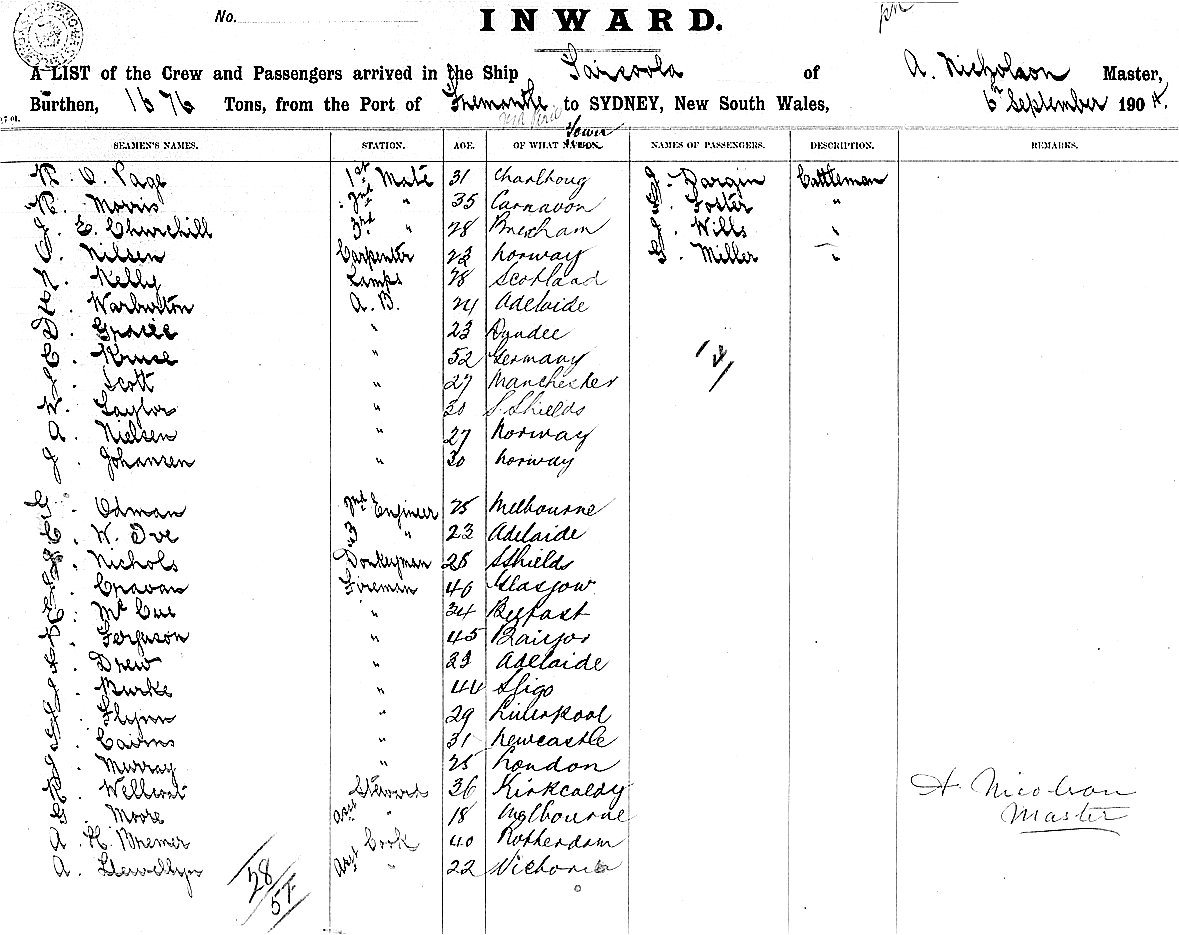 No.
INWARD.
A LIST of the Crew and Passengers arrived in the Ship Saroola of A. Nicholson Master,
Burthen, 1676 Tons, from the Port of Fremantle to SYDNEY, New South Wales, 6th September 1904.
SEAMEN'S NAMES. STATION. AGE. OF WHAT NATION. Town NAMES OF PASSENGERS. DESCRIPTION. REMARKS.
O. Page 1st Mate 31 Dargin Cattleman
Morris 2nd " 35 Carnavon Foster "
E. Churchill 3rd " 28 Brixham Wills "
Nilsen Carpenter 23 Norway Miller "
Kelly Lamps 28 Scotland
Warburton A.B. 24 Adelaide
D. Gracie " 23 Dundee
C. Kruse " 52 Germany
Scott " 27 Manchester
Taylor " 30 S. Shields
A. Nielsen " 27 Norway
J. Johansen " 30 Norway
Odman 2nd Engineer 25 Melbourne
W. Ive 3 " 23 Adelaide
Nichols Donkeyman 28 S Shields
Cravan Fireman 40 Glasgow
Mc Cue " 34 Belfast
Ferguson " 45
Drew " 23 Adelaide
Burke " 44 Sligo
Flynn " 29 Liverpool
Cairns " 31 Newcastle
Murray " 25 London
Steward 36 Kirkcaldy
Moore Asst " 18 Melbourne
A. H. Bremer Cook 40 Rotherdam
A. Llewellyn Asst " 22 Victoria
28
57
A. Nicolson
Master